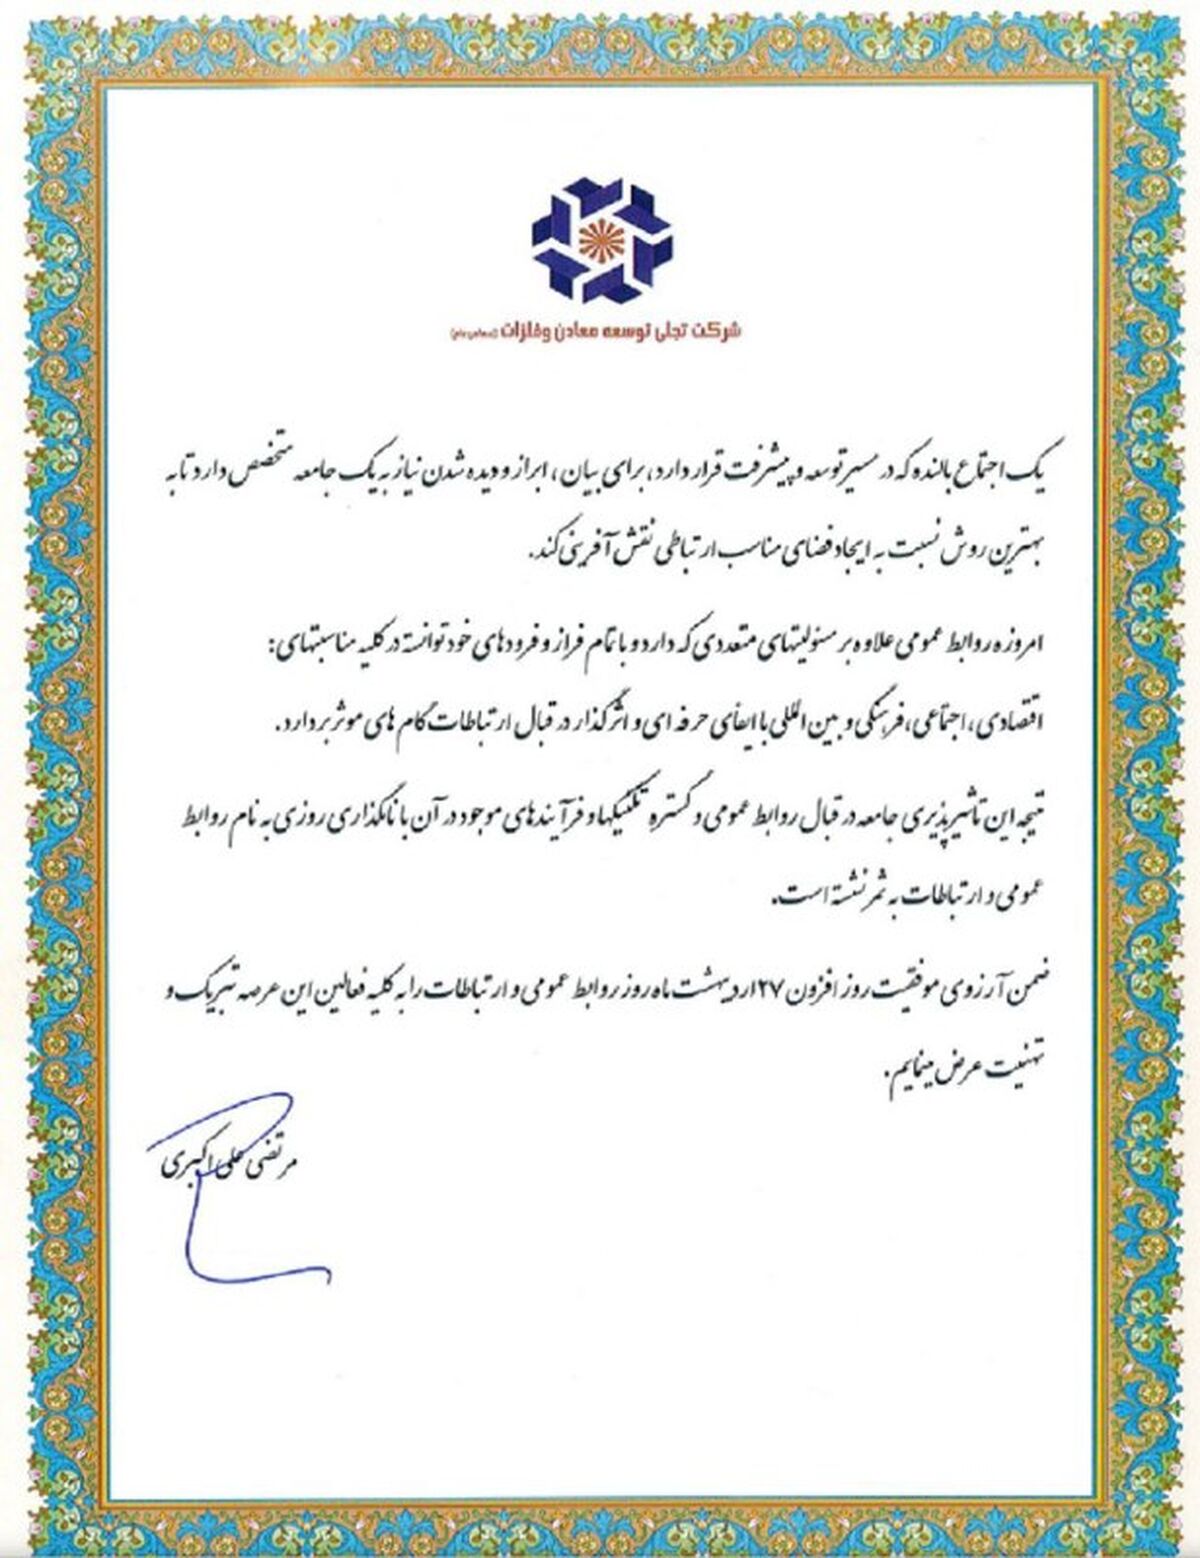 شرکت تجلی توسعه معادن و فلزات (سهامی عام)
یک اجتماع بالنده که در مسیر توسعه و پیشرفت قرار دارد، برای بیان، ابراز و دیده شدن نیاز به یک جامعه متخصص دارد تا به
بهترین روش نسبت به ایجاد فضای مناسب ارتباطی نقش آفرینی کند.
امروزه روابط عمومی علاوه بر مسئولیتهای متعددی که دارد و با تمام فراز و فرودهای خود توانسته در کلیه مناسبتهای:
اقتصادی، اجتماعی، فرهنگی و بین المللی با ایفای حرفه ای و اثرگذار در قبال ارتباطات گام های موثر بردارد.
نتیجه این تاثیرپذیری جامعه در قبال روابط عمومی و گستره تکنیکها و فرآیندهای موجود در آن با نامگذاری روزی به نام روابط
عمومی و ارتباطات به ثمر نشسته است.
ضمن آرزوی موفقیت روز افزون ۲۷ اردیبهشت ماه روز روابط عمومی و ارتباطات را به کلیه فعالین این عرصه تبریک و
تهنیت عرض مینمایم.
مرتضی علی اکبری